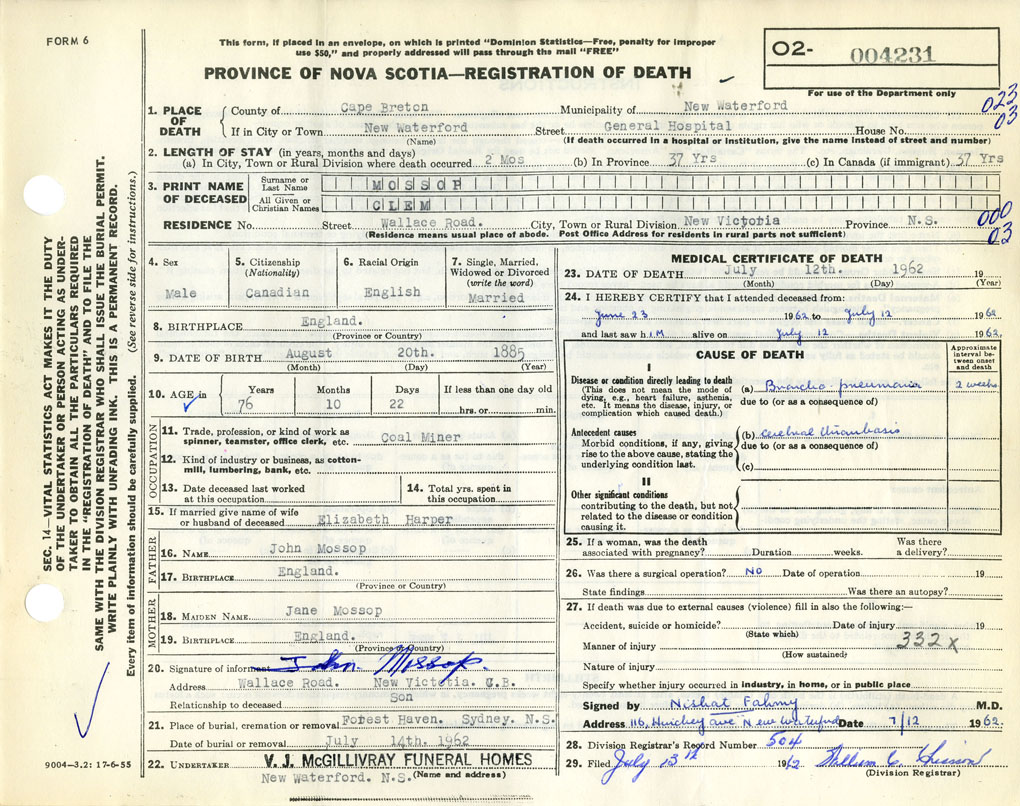 FORM 6
This form, if placed in an envelope, on which is printed "Dominion Statistics—Free, penalty for improper
use $50," and properly addressed will pass through the mail "FREE"
PROVINCE OF NOVA SCOTIA—REGISTRATION OF DEATH
02- 004231
For use of the Department only
023
03
1. PLACE OF DEATH
County of Cape Breton Municipality of New Waterford
If in City or Town New Waterford Street General Hospital House No.
(Name) (If death occurred in a hospital or institution, give the name instead of street and number)
2. LENGTH OF STAY (in years, months and days)
(a) In City, Town or Rural Division where death occurred 2 Mos (b) In Province 37 Yrs (c) In Canada (if immigrant) 37 Yrs
3. PRINT NAME OF DECEASED
Surname or Last Name MOSSOP
All Given or Christian Names CLEM
000
03
RESIDENCE No. Street Wallace Road. City, Town or Rural Division New Victoria Province N.S.
(Residence means usual place of abode. Post Office Address for residents in rural parts not sufficient)
SEC. 14—VITAL STATISTICS ACT MAKES IT THE DUTY
OF THE UNDERTAKER OR PERSON ACTING AS UNDER-
TAKER TO OBTAIN ALL THE PARTICULARS REQUIRED
IN THE "REGISTRATION OF DEATH" AND TO FILE THE
SAME WITH THE DIVISION REGISTRAR WHO SHALL ISSUE THE BURIAL PERMIT.
WRITE PLAINLY WITH UNFADING INK. THIS IS A PERMANENT RECORD.
Every item of information should be carefully supplied. (See reverse side for instructions.)
4. Sex
Male
5. Citizenship
(Nationality)
Canadian
6. Racial Origin
English
7. Single, Married,
Widowed or Divorced
(write the word)
Married
8. BIRTHPLACE England.
(Province or Country)
9. DATE OF BIRTH August 20th. 1885
(Month) (Day) (Year)
10. AGE in
Years Months Days If less than one day old
76 10 22 hrs. or min.
OCCUPATION
11. Trade, profession, or kind of work as
spinner, teamster, office clerk, etc. Coal Miner
12. Kind of industry or business, as cotton-
mill, lumbering, bank, etc.
13. Date deceased last worked
at this occupation
14. Total yrs. spent in
this occupation
15. If married give name of wife
or husband of deceased Elizabeth Harper
FATHER
16. NAME John Mossop
17. BIRTHPLACE England.
(Province or Country)
MOTHER
18. MAIDEN NAME Jane Mossop
19. BIRTHPLACE England.
(Province or Country)
20. Signature of informant John Mossop.
Address Wallace Road. New Victotia. C.B.
Relationship to deceased Son
21. Place of burial, cremation or removal Forest Haven. Sydney. N.S.
Date of burial or removal July 14th. 1962
22. UNDERTAKER V. J. McGILLIVRAY FUNERAL HOMES
New Waterford. N.S. (Name and address)
9004—3.2: 17-6-55
MEDICAL CERTIFICATE OF DEATH
23. DATE OF DEATH July 12th. 1962 19
(Month) (Day) (Year)
24. I HEREBY CERTIFY that I attended deceased from:
June 23 1962 to July 12 1962
and last saw h im alive on July 12 1962.
CAUSE OF DEATH
Approximate
interval be-
tween onset
and death
I
Disease or condition directly leading to death
(This does not mean the mode of
dying, e.g., heart failure, asthenia,
etc. It means the disease, injury, or
complication which caused death.)
(a) Broncho-pneumonia 2 weeks
due to (or as a consequence of)
Antecedent causes
Morbid conditions, if any, giving
rise to the above cause, stating the
underlying condition last.
(b) cerebral thrombosis
due to (or as a consequence of)
(c)
II
Other significant conditions
contributing to the death, but not
related to the disease or condition
causing it.
25. If a woman, was the death
associated with pregnancy? Duration weeks. Was there
a delivery?
26. Was there a surgical operation? NO Date of operation 19
State findings Was there an autopsy?
27. If death was due to external causes (violence) fill in also the following:—
Accident, suicide or homicide? Date of injury 19
(State which)
Manner of injury 332X
(How sustained)
Nature of injury
Specify whether injury occurred in industry, in home, or in public place
Signed by Nishat Fahmy M.D.
Address 116, ave New Waterford Date 7/12 1962.
28. Division Registrar's Record Number 504
29. Filed July 13th 1962 William C.
(Division Registrar)